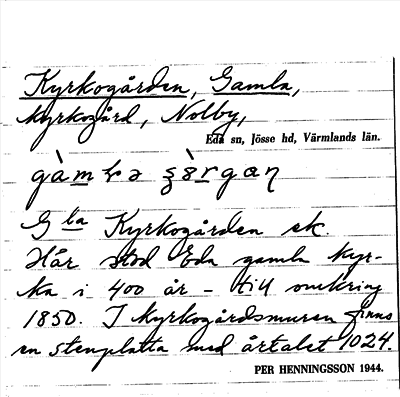 Kyrkogården, Gamla,
kyrkogård, Nolby,
Eda sn, Jösse hd, Värmlands län.
G la Kyrkogården ek.
Här stod Eda gamla kyr-
ka i 400 år – till omkring
1850. I kyrkogårdsmuren finns
en stenplatta med årtalet 1024.
PER HENNINGSSON 1944.